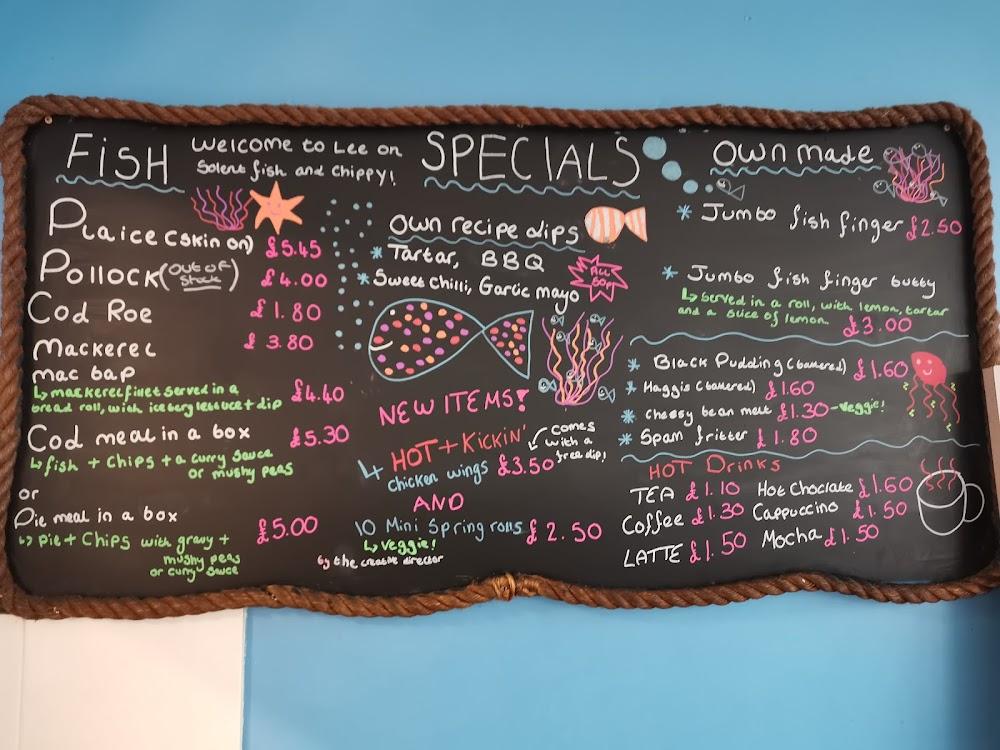 FISH
Welcome to Lee on
Solent fish and chippy!
Plaice (skin on) £5.45
Pollock (out of
stock) £4.00
Cod Roe £1.80
Mackerel £3.80
mac bap
↳ mackerel fillet served in a £4.40
bread roll, with iceberg lettuce + dip
Cod meal in a box £5.30
↳ fish + chips + a curry sauce
or mushy peas
or
Pie meal in a box £5.00
↳ pie + Chips with gravy +
mushy peas
or curry sauce
SPECIALS
Own recipe dips
* Tartar, BBQ
* Sweet chilli, Garlic mayo
ALL
60p
NEW ITEMS!
↳ HOT + KICKIN'
chicken wings £3.50
comes
with a
free dip!
AND
10 Mini Spring rolls £2.50
↳ Veggie!
by the creative director
Own made
* Jumbo fish finger £2.50
* Jumbo fish finger butty
↳ Served in a roll, with lemon, tartar
and a slice of lemon £3.00
* Black Pudding (battered) £1.60
* Haggis (battered) £1.60
* cheesy bean melt £1.30 - veggie!
* Spam fritter £1.80
HOT Drinks
TEA £1.10 Hot Choclate £1.60
Coffee £1.30 Cappuccino £1.50
LATTE £1.50 Mocha £1.50